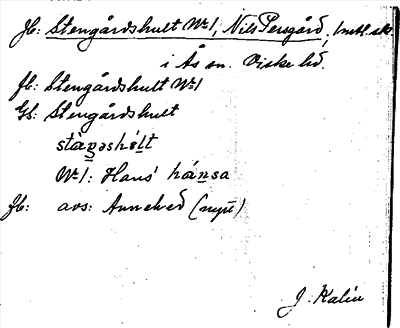 Jb: Stengårdshult No 1, Nils Persgård, 1 mtl sk
i Ås sn. Viske hd.
Jb: Stengårdshult No 1
Gs: Stengårdshult
No 1: Hans' hánsa
Jb: avs: Annehed (nytt)
J. Kalén